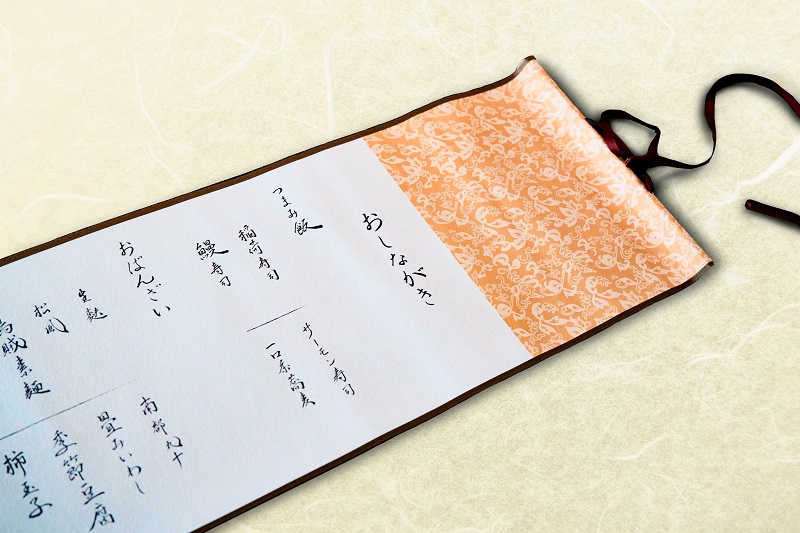 おしながき
つまみ飯
稲荷寿司
鰻寿司
サーモン寿司
一口茶蕎麦
おばんざい
生麩
松風
烏賊素麺
南部丸十
畳みいわし
季節豆腐
柿玉子